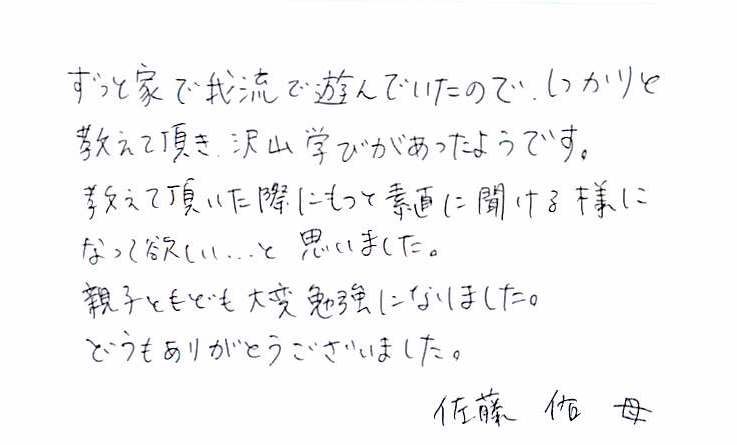 ずっと家で我流で遊んでいたので、しっかりと
教えて頂き、沢山学びがあったようです。
教えて頂いた際にもっと素直に聞ける様に
なって欲しい...と思いました。
親子ともども大変勉強になりました。
どうもありがとうございました。
佐藤 佑 母